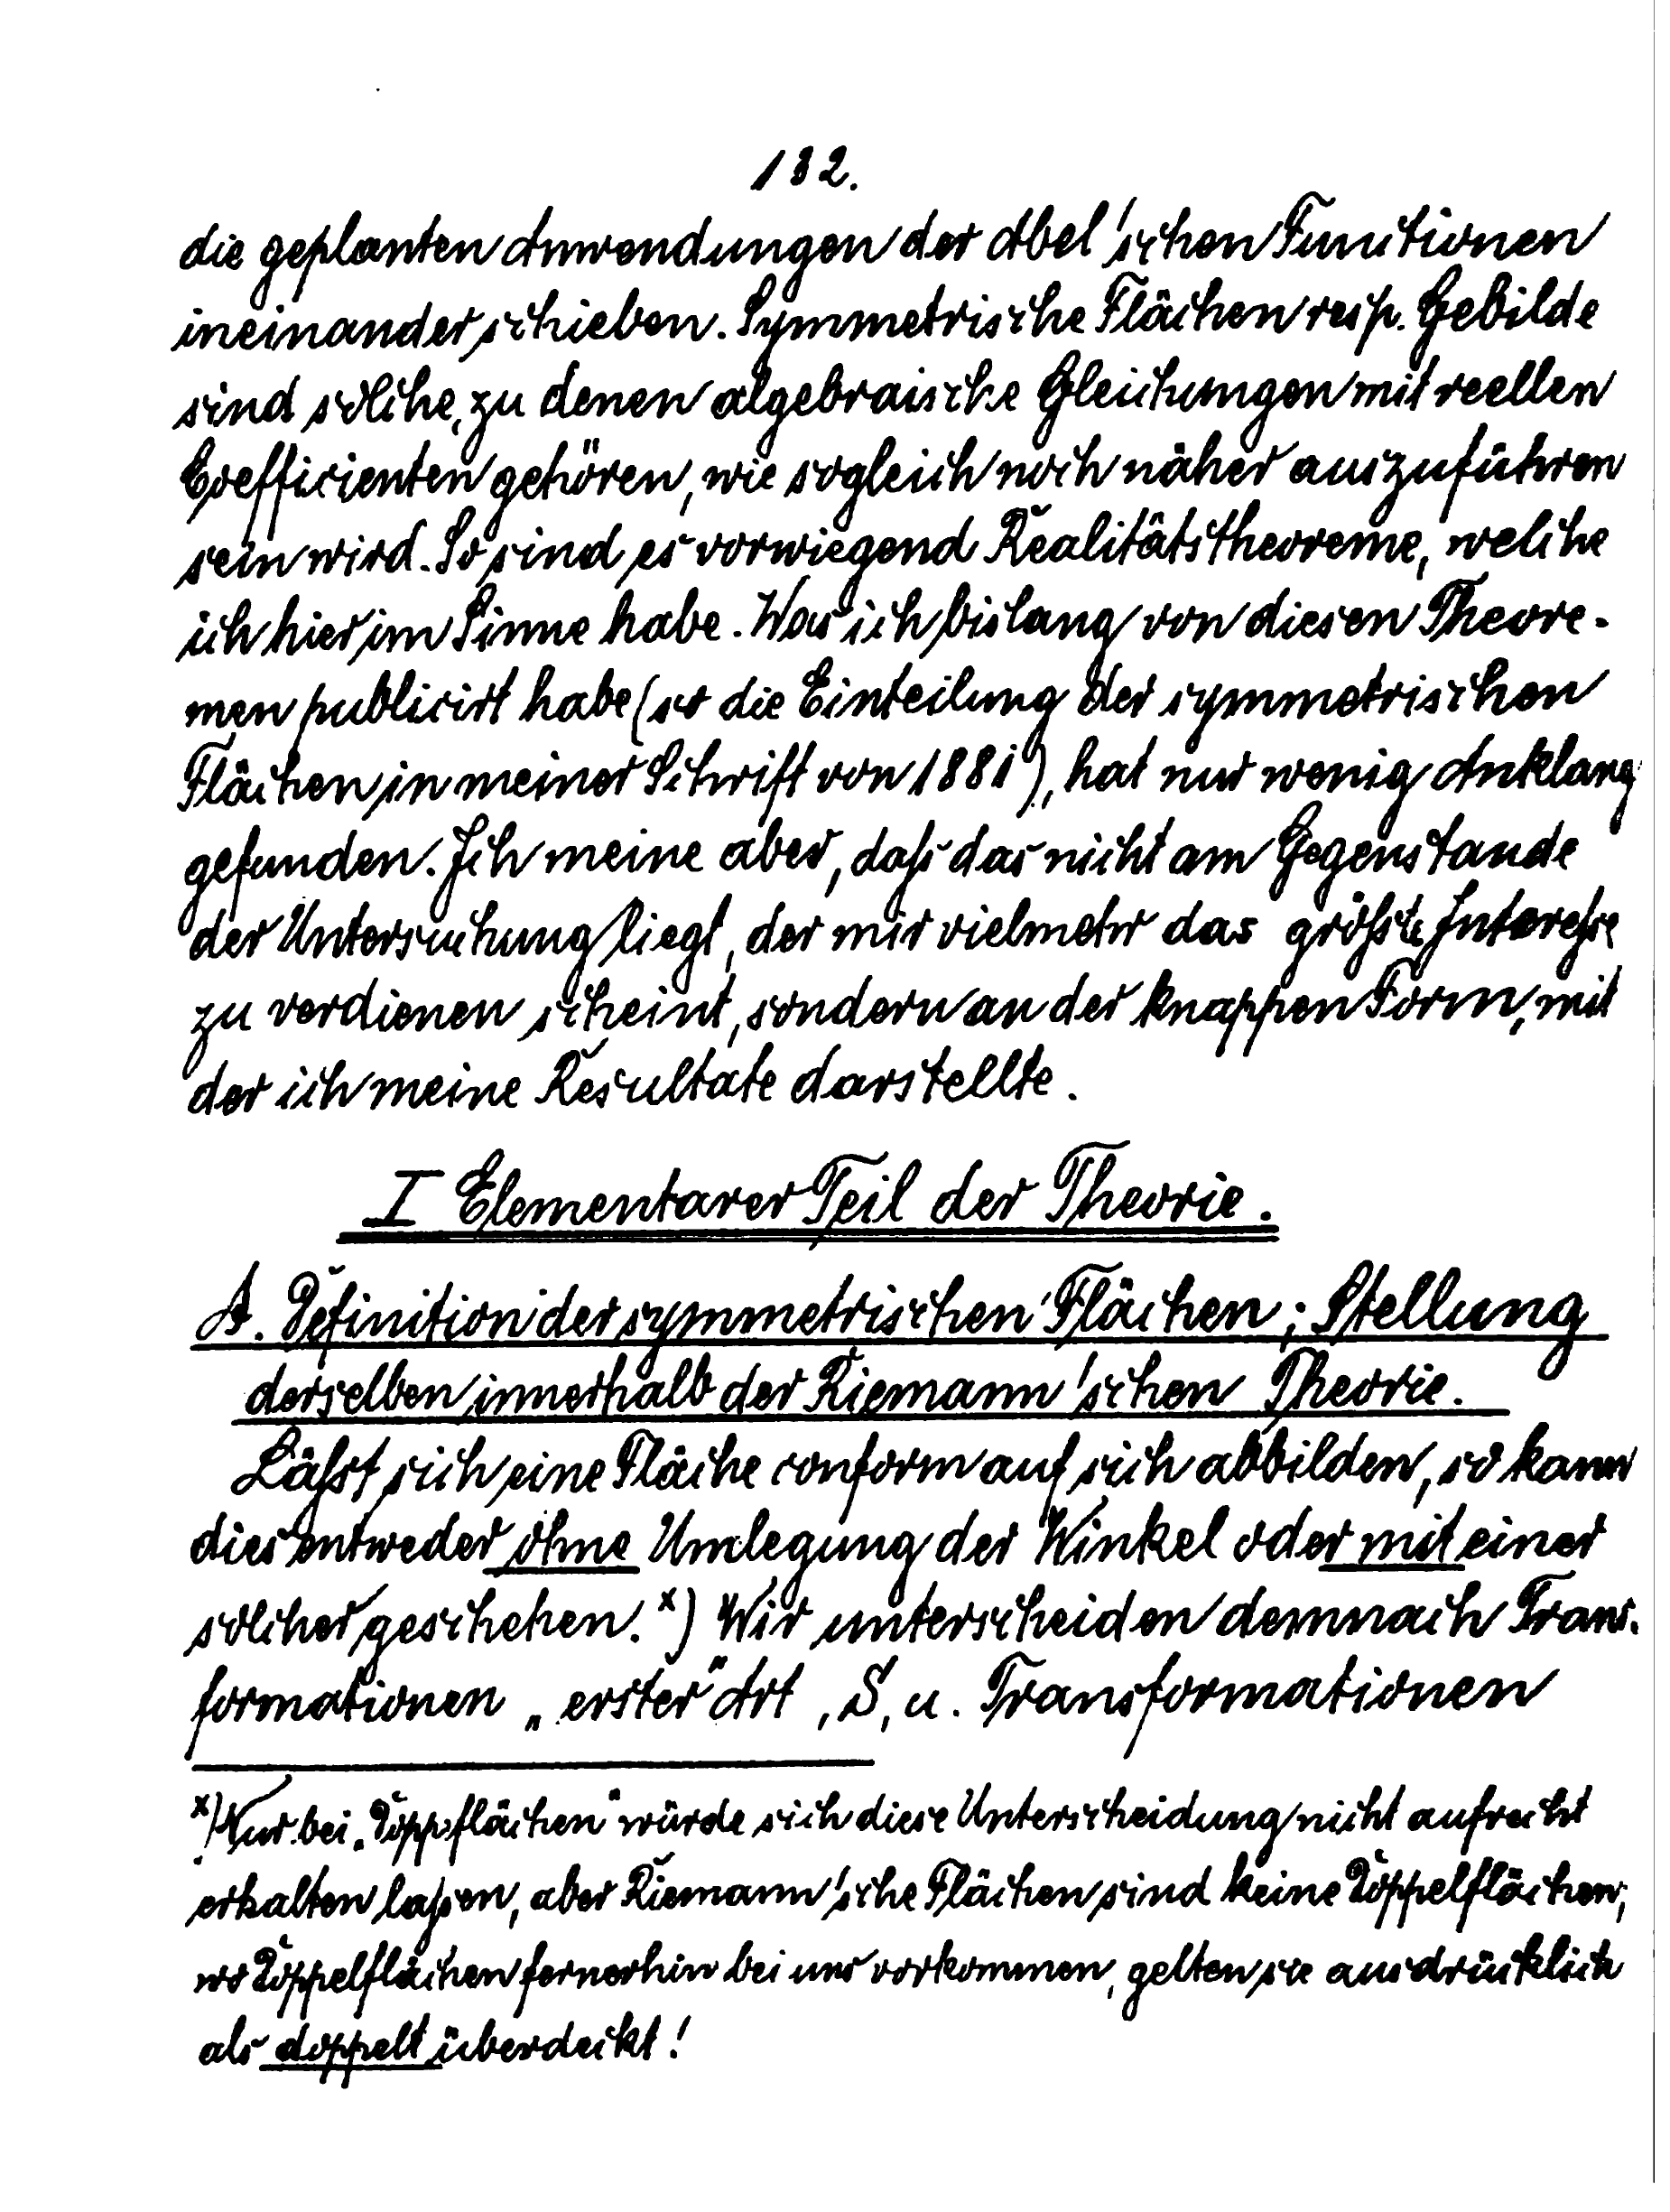 132.
die geplanten Anwendungen der Abel'schen Functionen
ineinander schieben. Symmetrische Flächen resp. Gebilde
sind solche, zu denen algebraische Gleichungen mit reellen
Coefficienten gehören, wie sogleich noch näher auszuführen
sein wird. So sind es vorwiegend Realitätstheoreme, welche
ich hier im Sinne habe. Was ich bislang von diesen Theore-
men publicirt habe (so die Einteilung der symmetrischen
Flächen in meiner Schrift von 1881), hat nur wenig Anklang
gefunden. Ich meine aber, daß das nicht am Gegenstande
der Untersuchung liegt, der mir vielmehr das größte Interesse
zu verdienen scheint, sondern an der knappen Form, mit
der ich meine Resultate darstellte.
I Elementarer Teil der Theorie.
A. Definition der symmetrischen Flächen; Stellung
derselben innerhalb der Riemann'schen Theorie.
Läßt sich eine Fläche conform auf sich abbilden, so kann
dies entweder ohne Umlegung der Winkel oder mit einer
solcher geschehen.ˣ) Wir unterscheiden demnach Trans-
formationen „erster" Art, S, u. Transformationen
ˣ) Nur bei „Doppelflächen" würde sich diese Unterscheidung nicht aufrecht
erhalten laßen, aber Riemann'sche Flächen sind keine Doppelflächen;
wo Doppelflächen fernerhin bei uns vorkommen, gelten sie ausdrücklich
als doppelt überdeckt!